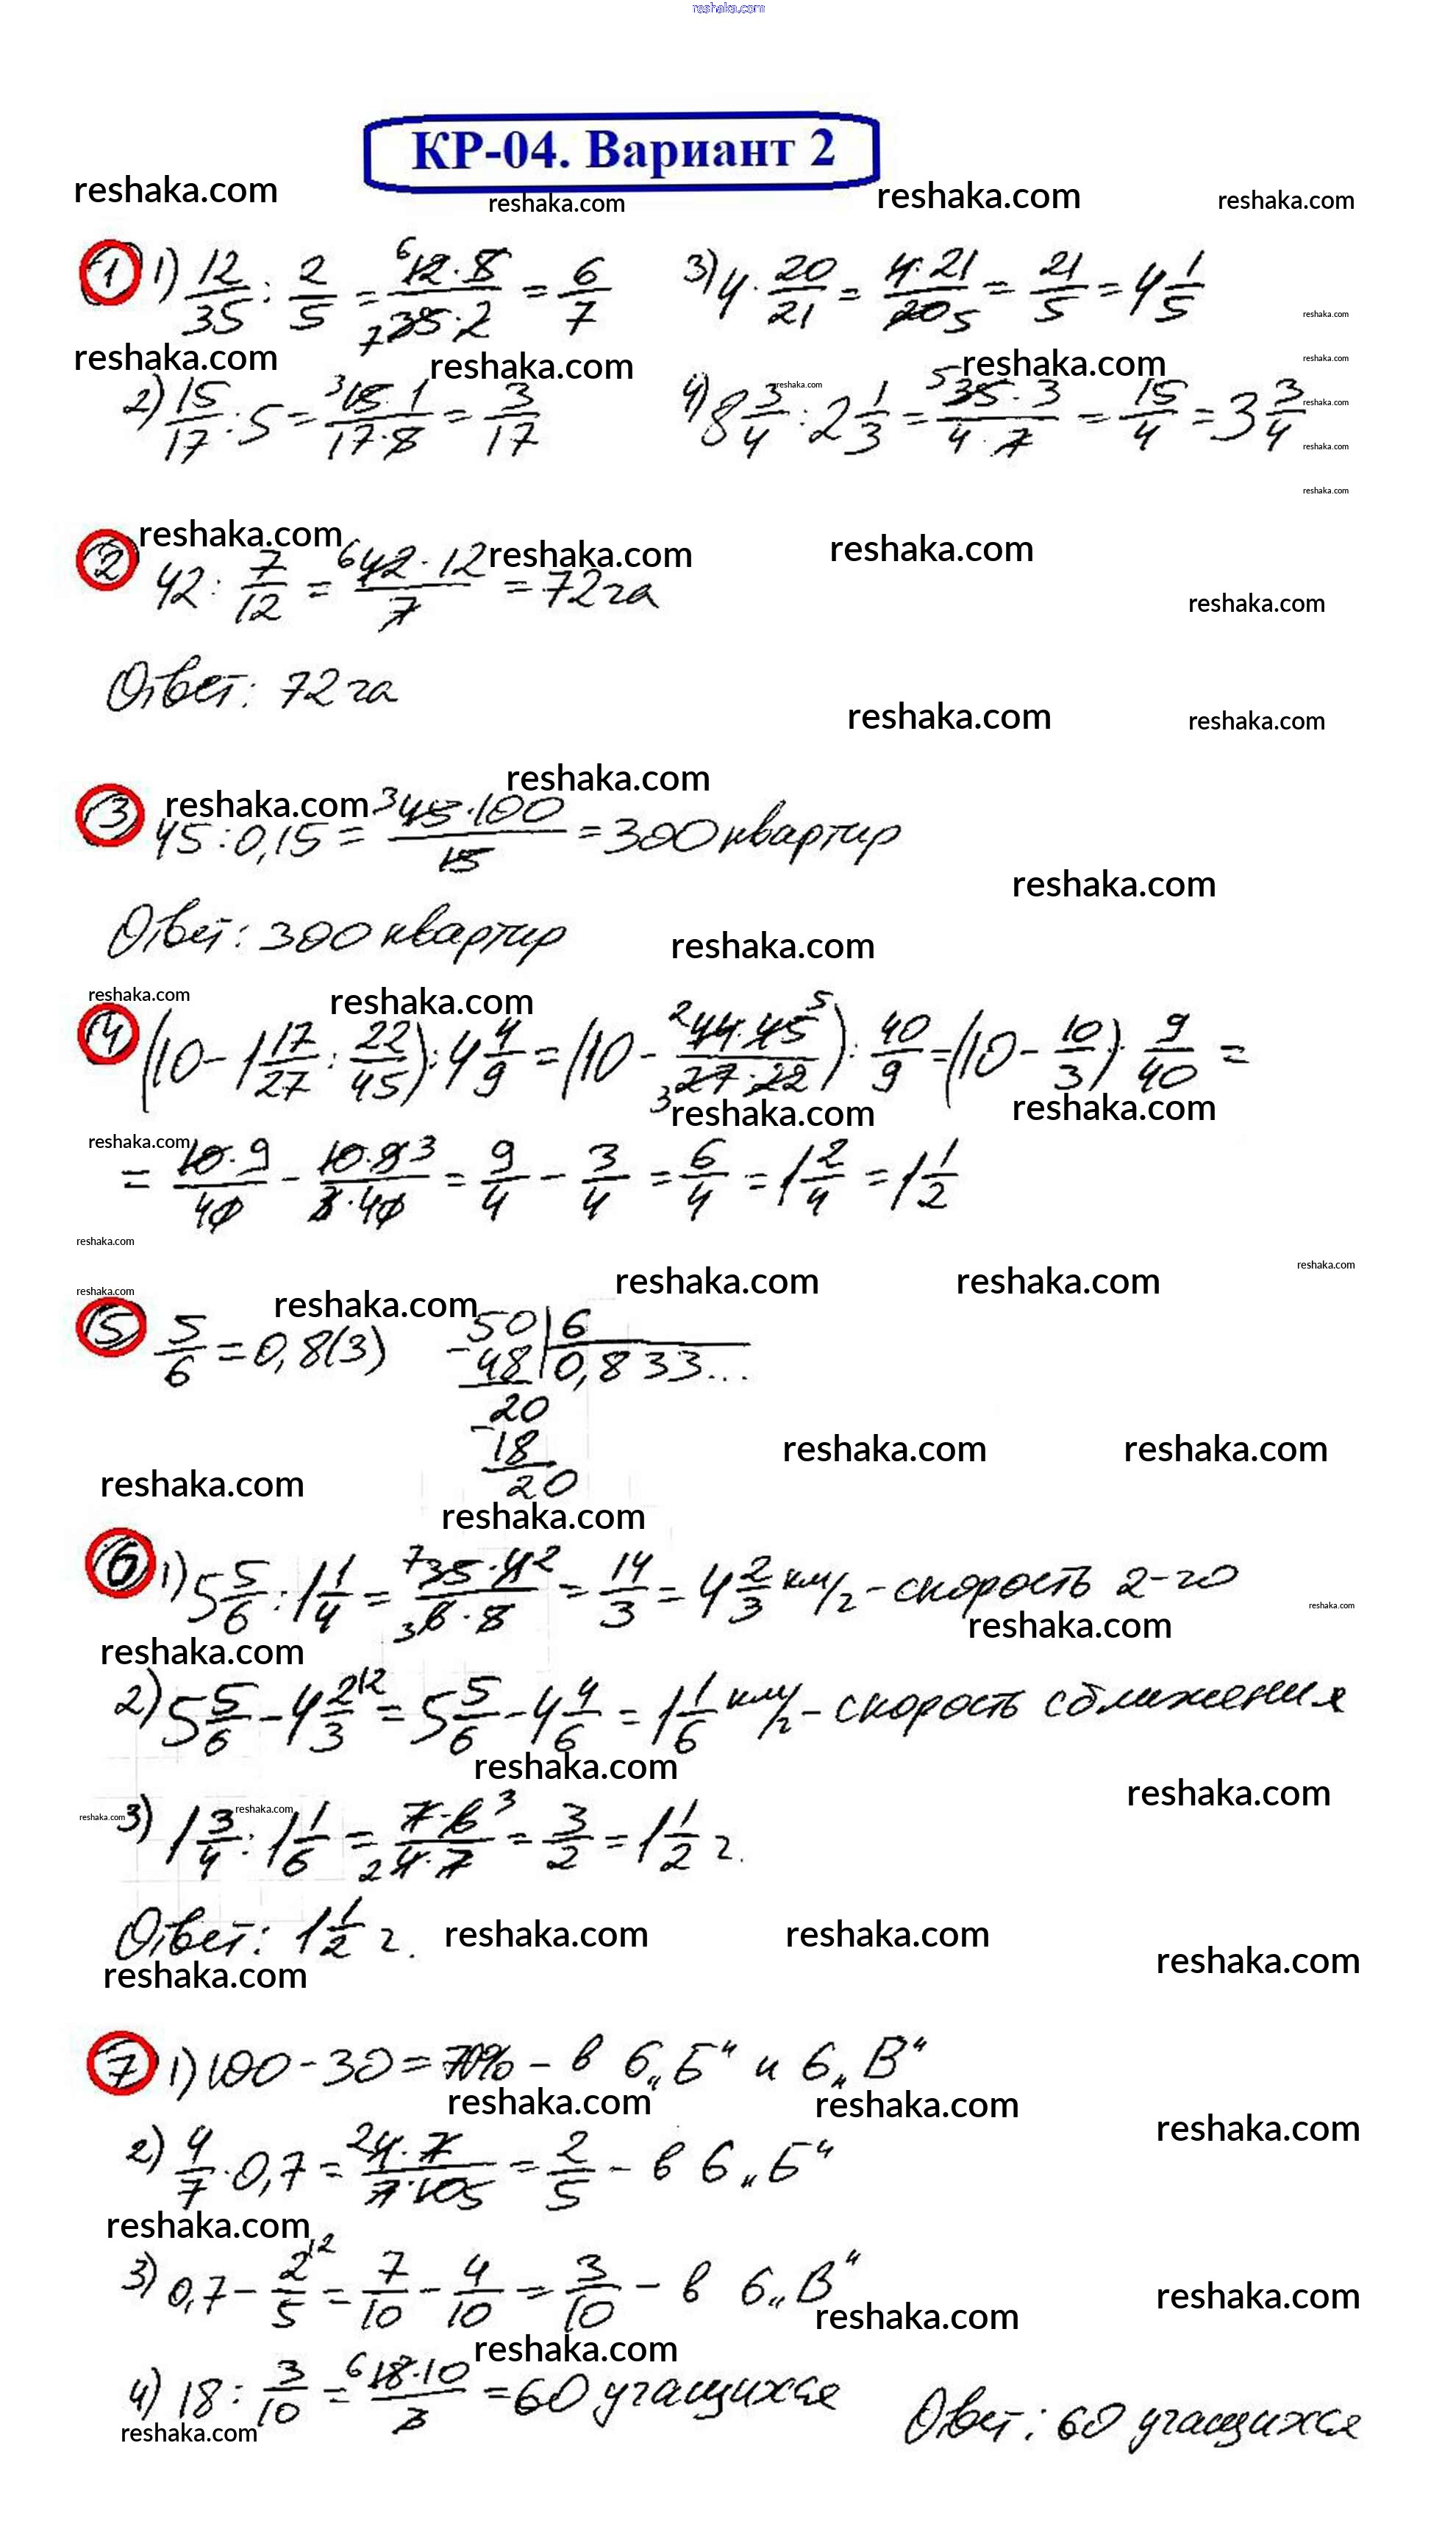 reshaka.com
КР-04. Вариант 2
reshaka.com reshaka.com reshaka.com reshaka.com
1 1) 12/35 : 2/5 = 12·5/35·2 = 6/7 3) 4 · 20/21 = 4·21/20 = 21/5 = 4 1/5
reshaka.com
reshaka.com reshaka.com reshaka.com reshaka.com
2) 15/17 : 5 = 15·1/17·5 = 3/17 4) 8 3/4 : 2 1/3 = 35·3/4·7 = 15/4 = 3 3/4
reshaka.com reshaka.com
reshaka.com
reshaka.com
reshaka.com reshaka.com reshaka.com
2 42 : 7/12 = 42·12/7 = 72 га
reshaka.com
Ответ: 72 га
reshaka.com reshaka.com
reshaka.com
reshaka.com
3 45 : 0,15 = 45·100/15 = 300 квартир
reshaka.com
Ответ: 300 квартир
reshaka.com
reshaka.com reshaka.com
4 (10 - 1 17/27 : 22/45) : 4 4/9 = (10 - 44·45/27·22) : 40/9 = (10 - 10/3) · 9/40 =
reshaka.com reshaka.com
reshaka.com
= 10·9/40 - 10·9/3·40 = 9/4 - 3/4 = 6/4 = 1 2/4 = 1 1/2
reshaka.com
reshaka.com
reshaka.com reshaka.com
reshaka.com reshaka.com
5 5/6 = 0,8(3) 50 | 6
- 48 | 0,833...
20
- 18
20
reshaka.com reshaka.com
reshaka.com
reshaka.com
6 1) 5 5/6 : 1 1/4 = 35·4/6·5 = 14/3 = 4 2/3 км/ч - скорость 2-го
reshaka.com
reshaka.com
reshaka.com
2) 5 5/6 - 4 2/3 = 5 5/6 - 4 4/6 = 1 1/6 км/ч - скорость сближения
reshaka.com
reshaka.com
reshaka.com reshaka.com
3) 1 3/4 : 1 1/6 = 7·6/4·7 = 3/2 = 1 1/2 ч.
Ответ: 1 1/2 ч.
reshaka.com reshaka.com
reshaka.com reshaka.com
7 1) 100 - 30 = 70% - в 6 „Б“ и 6 „В“
reshaka.com reshaka.com
reshaka.com
2) 4/7 · 0,7 = 4·7/7·10 = 2/5 - в 6 „Б“
reshaka.com
3) 0,7 - 2/5 = 7/10 - 4/10 = 3/10 - в 6 „В“
reshaka.com
reshaka.com
reshaka.com
4) 18 : 3/10 = 18·10/3 = 60 учащихся Ответ: 60 учащихся
reshaka.com